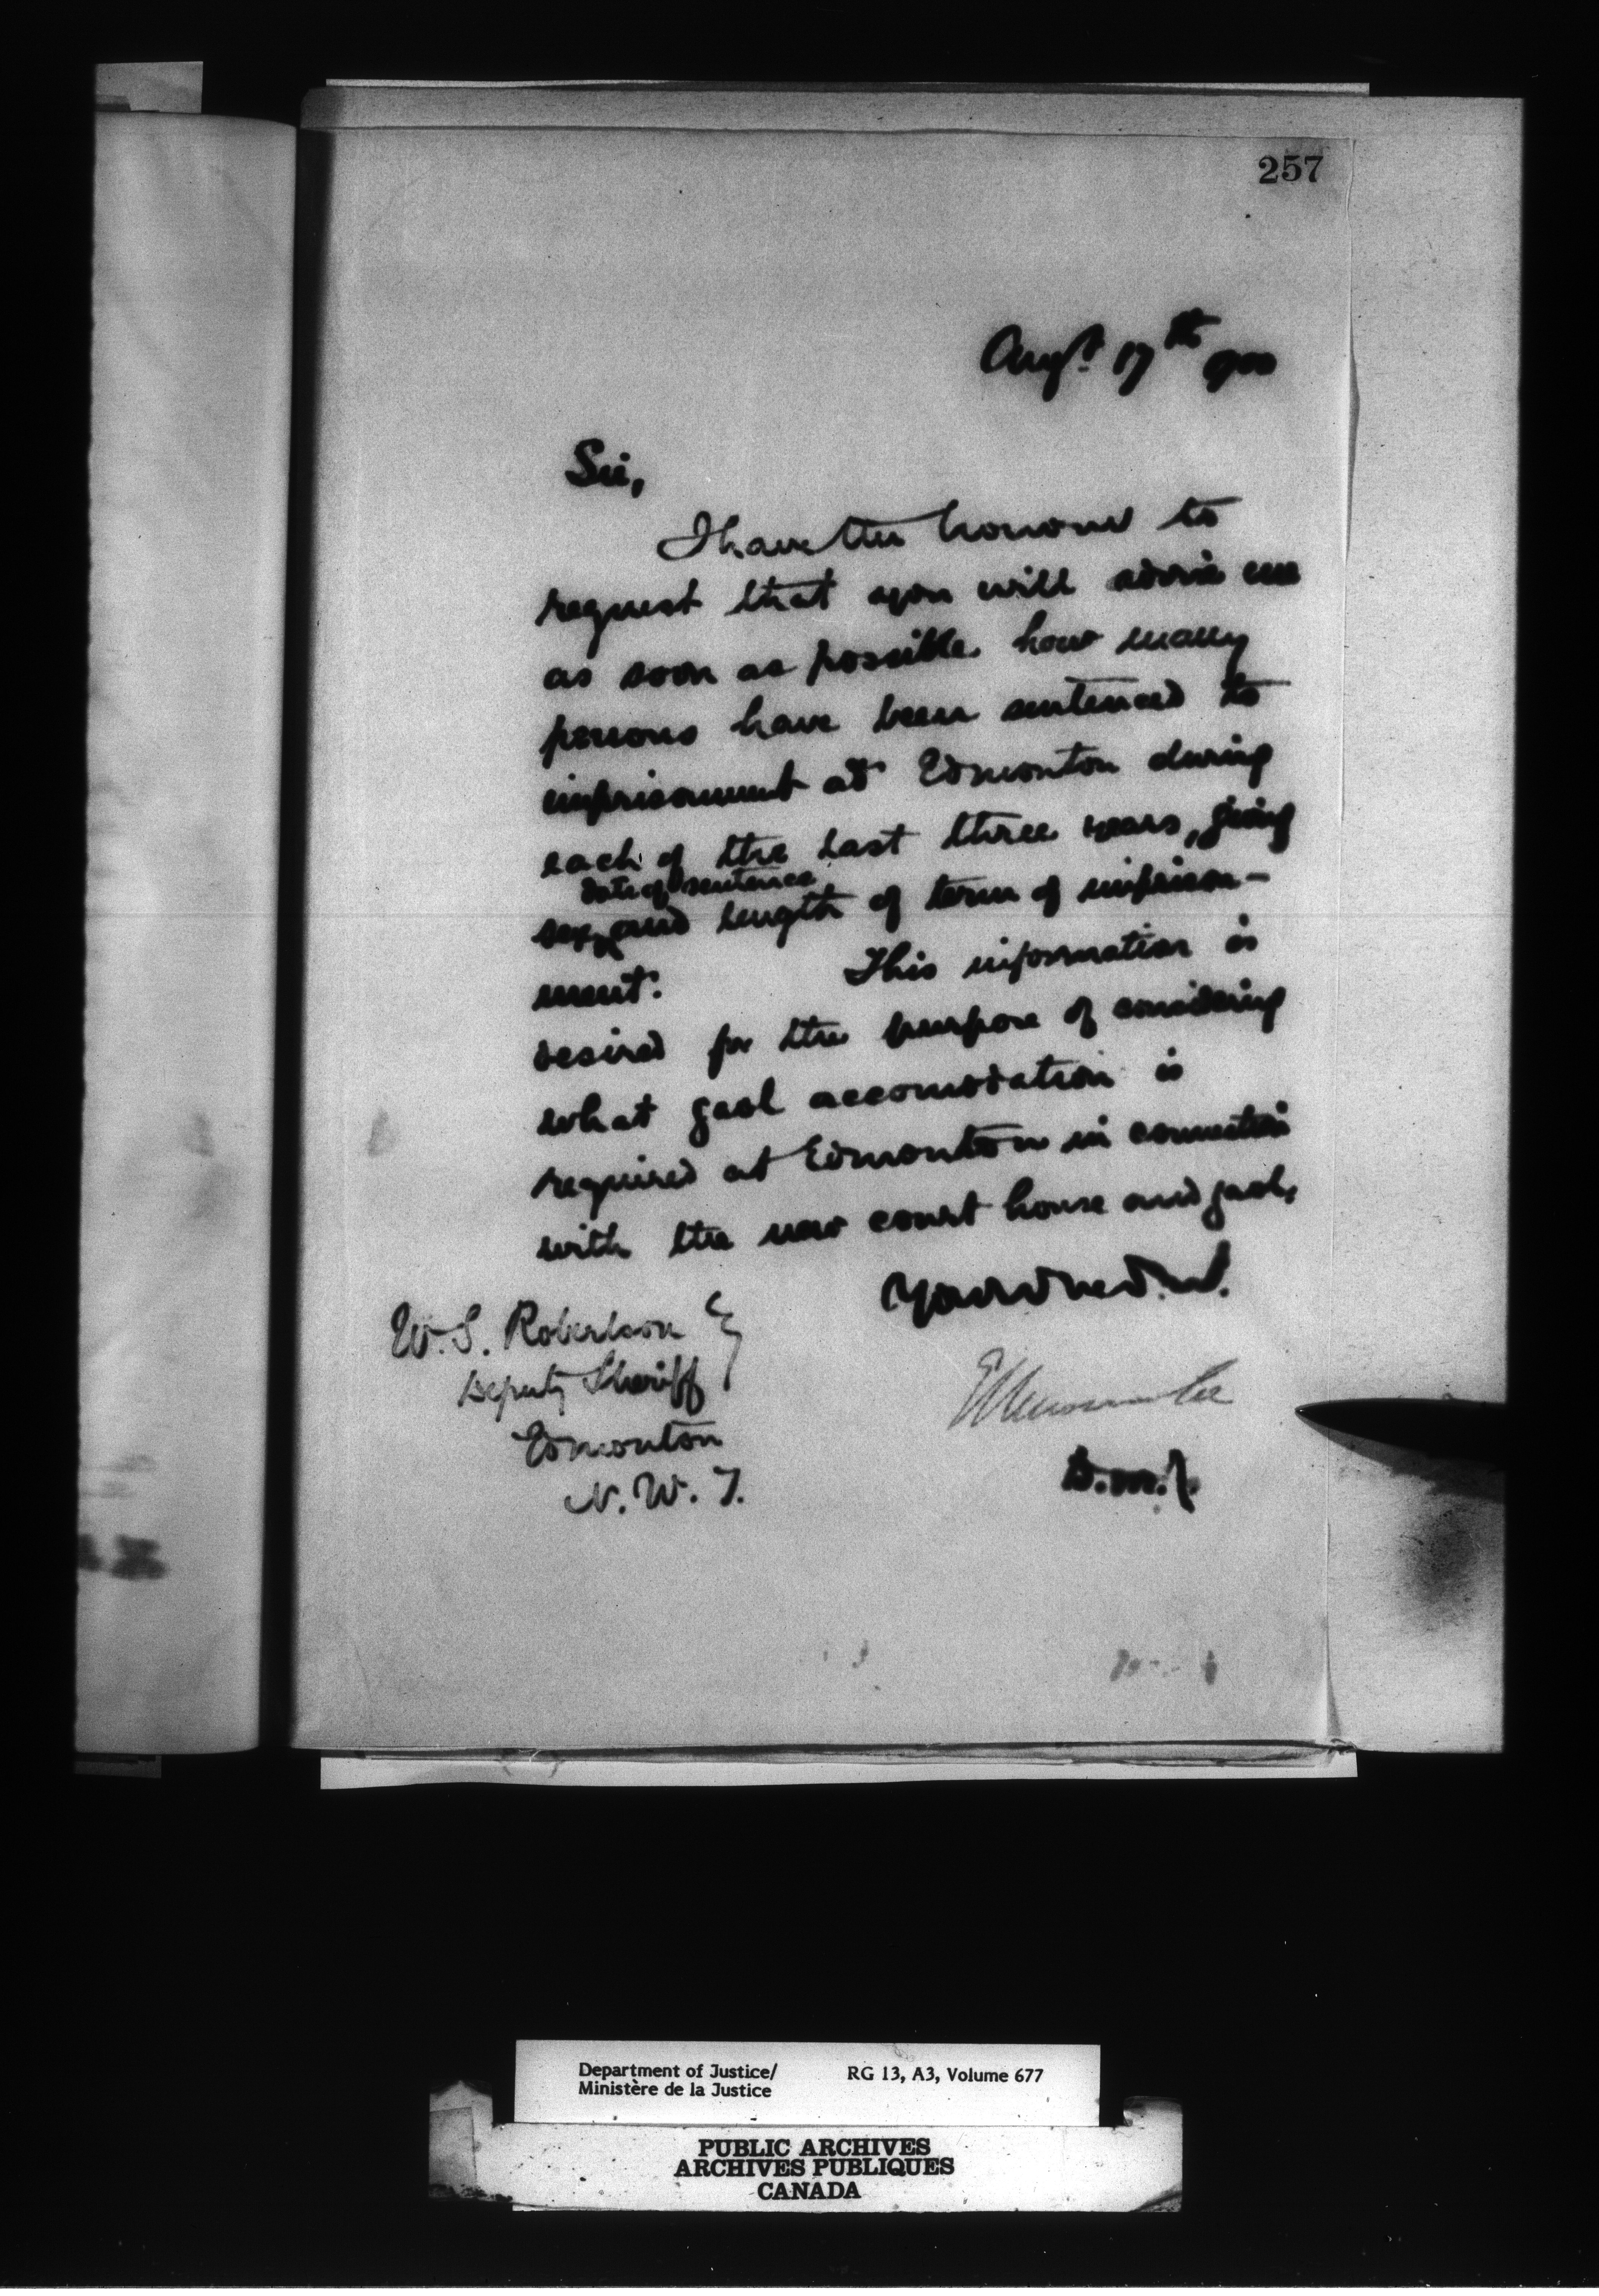 257
Augt. 17th 1900
Sir,
I have the honour to
request that you will advise me
as soon as possible how many
persons have been sentenced to
imprisonment at Edmonton during
each of the last three years, giving
date of sentence
sex, and length of term of imprison-
ment. This information is
desired for the purpose of considering
what gaol accomodation is
required at Edmonton in connection
with the new court house and gaol.
W. S. Robertson
Deputy Sheriff
Edmonton
N. W. T.
E L Newcombe
D. M. J.
Department of Justice/ RG 13, A3, Volume 677
Ministère de la Justice
PUBLIC ARCHIVES
ARCHIVES PUBLIQUES
CANADA